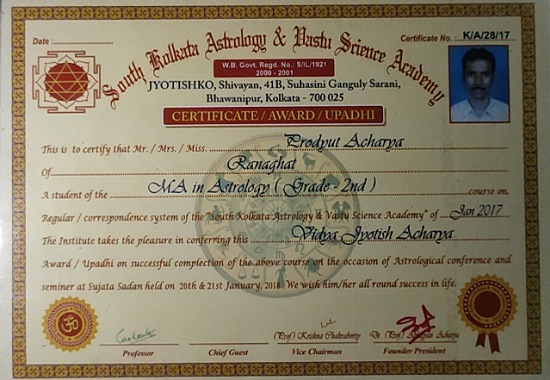 South Kolkata Astrology & Vastu Science Academy
Date : Certificate No. : K/A/28/17
W.B. Govt. Regd. No.: S/IL/1921
2000 - 2001
JYOTISHKO, Shivayan, 41B, Suhasini Ganguly Sarani,
Bhawanipur, Kolkata - 700 025
CERTIFICATE / AWARD / UPADHI
This is to certify that Mr. / Mrs. / Miss. Prodyut Acharya
Of Ranaghat
A student of the MA in Astrology ( Grade - 2nd ) course on
Regular / correspondence system of the "South Kolkata Astrology & Vastu Science Academy" of Jan 2017
The Institute takes the pleasure in conferring this Vidya Jyotish Acharya
Award / Upadhi on successful complection of the above course on the occasion of Astrological conference and
seminer at Sujata Sadan held on 20th & 21st January, 2018. We wish him/her all round success in life.
(Prof) Krishna Chakraborty Dr (Prof) Acharya
Professor Chief Guest Vice Chairman Founder President